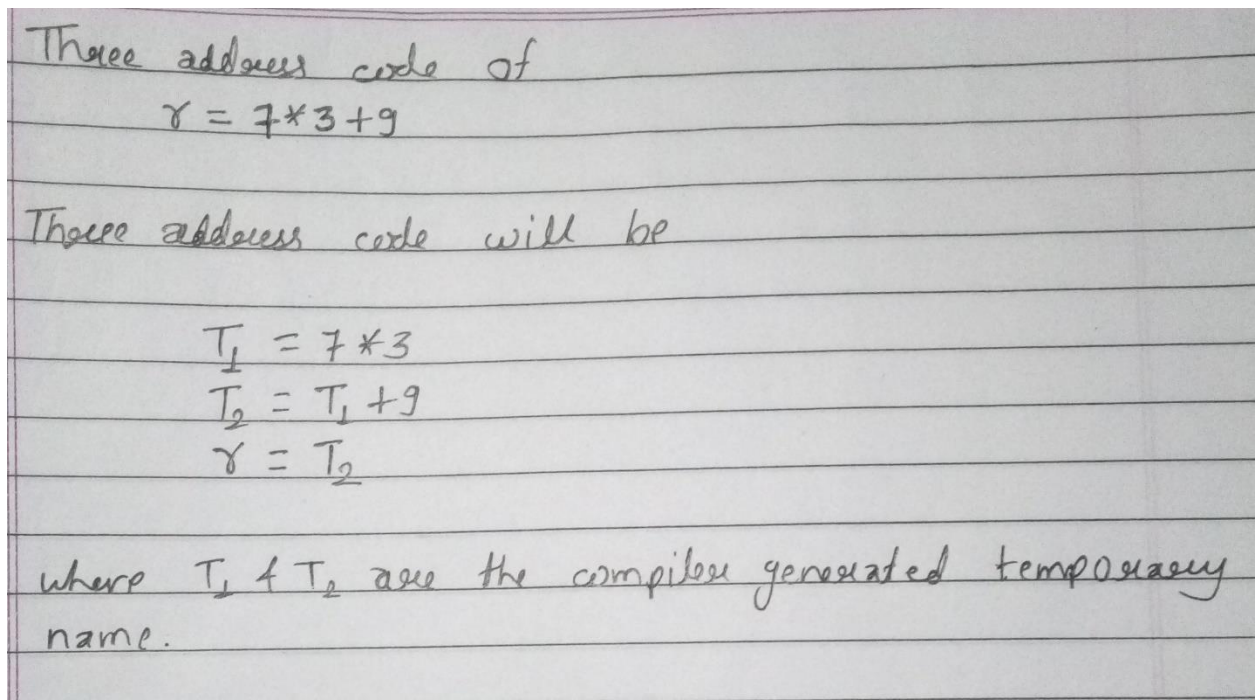 Three address code of
r = 7*3+9
Three address code will be
T1 = 7*3
T2 = T1 +9
r = T2
where T1 & T2 are the compiler generated temporary
name.